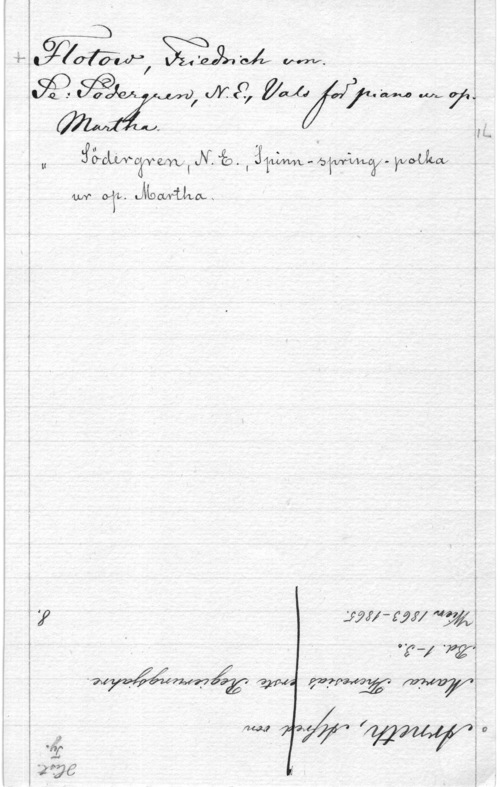 + Flotow, Friedrich von.
Se: Södergren, N. E., Vals för piano ur op.
Martha.
" Södergren, N. E., Spinn-spring-polka
ur op. Martha.
Hist.
Ty.
Arneth, Alfred von
Maria Theresia's erste Regierungsjahre
Bd. 1-3.
Wien 1863-1865.
8.